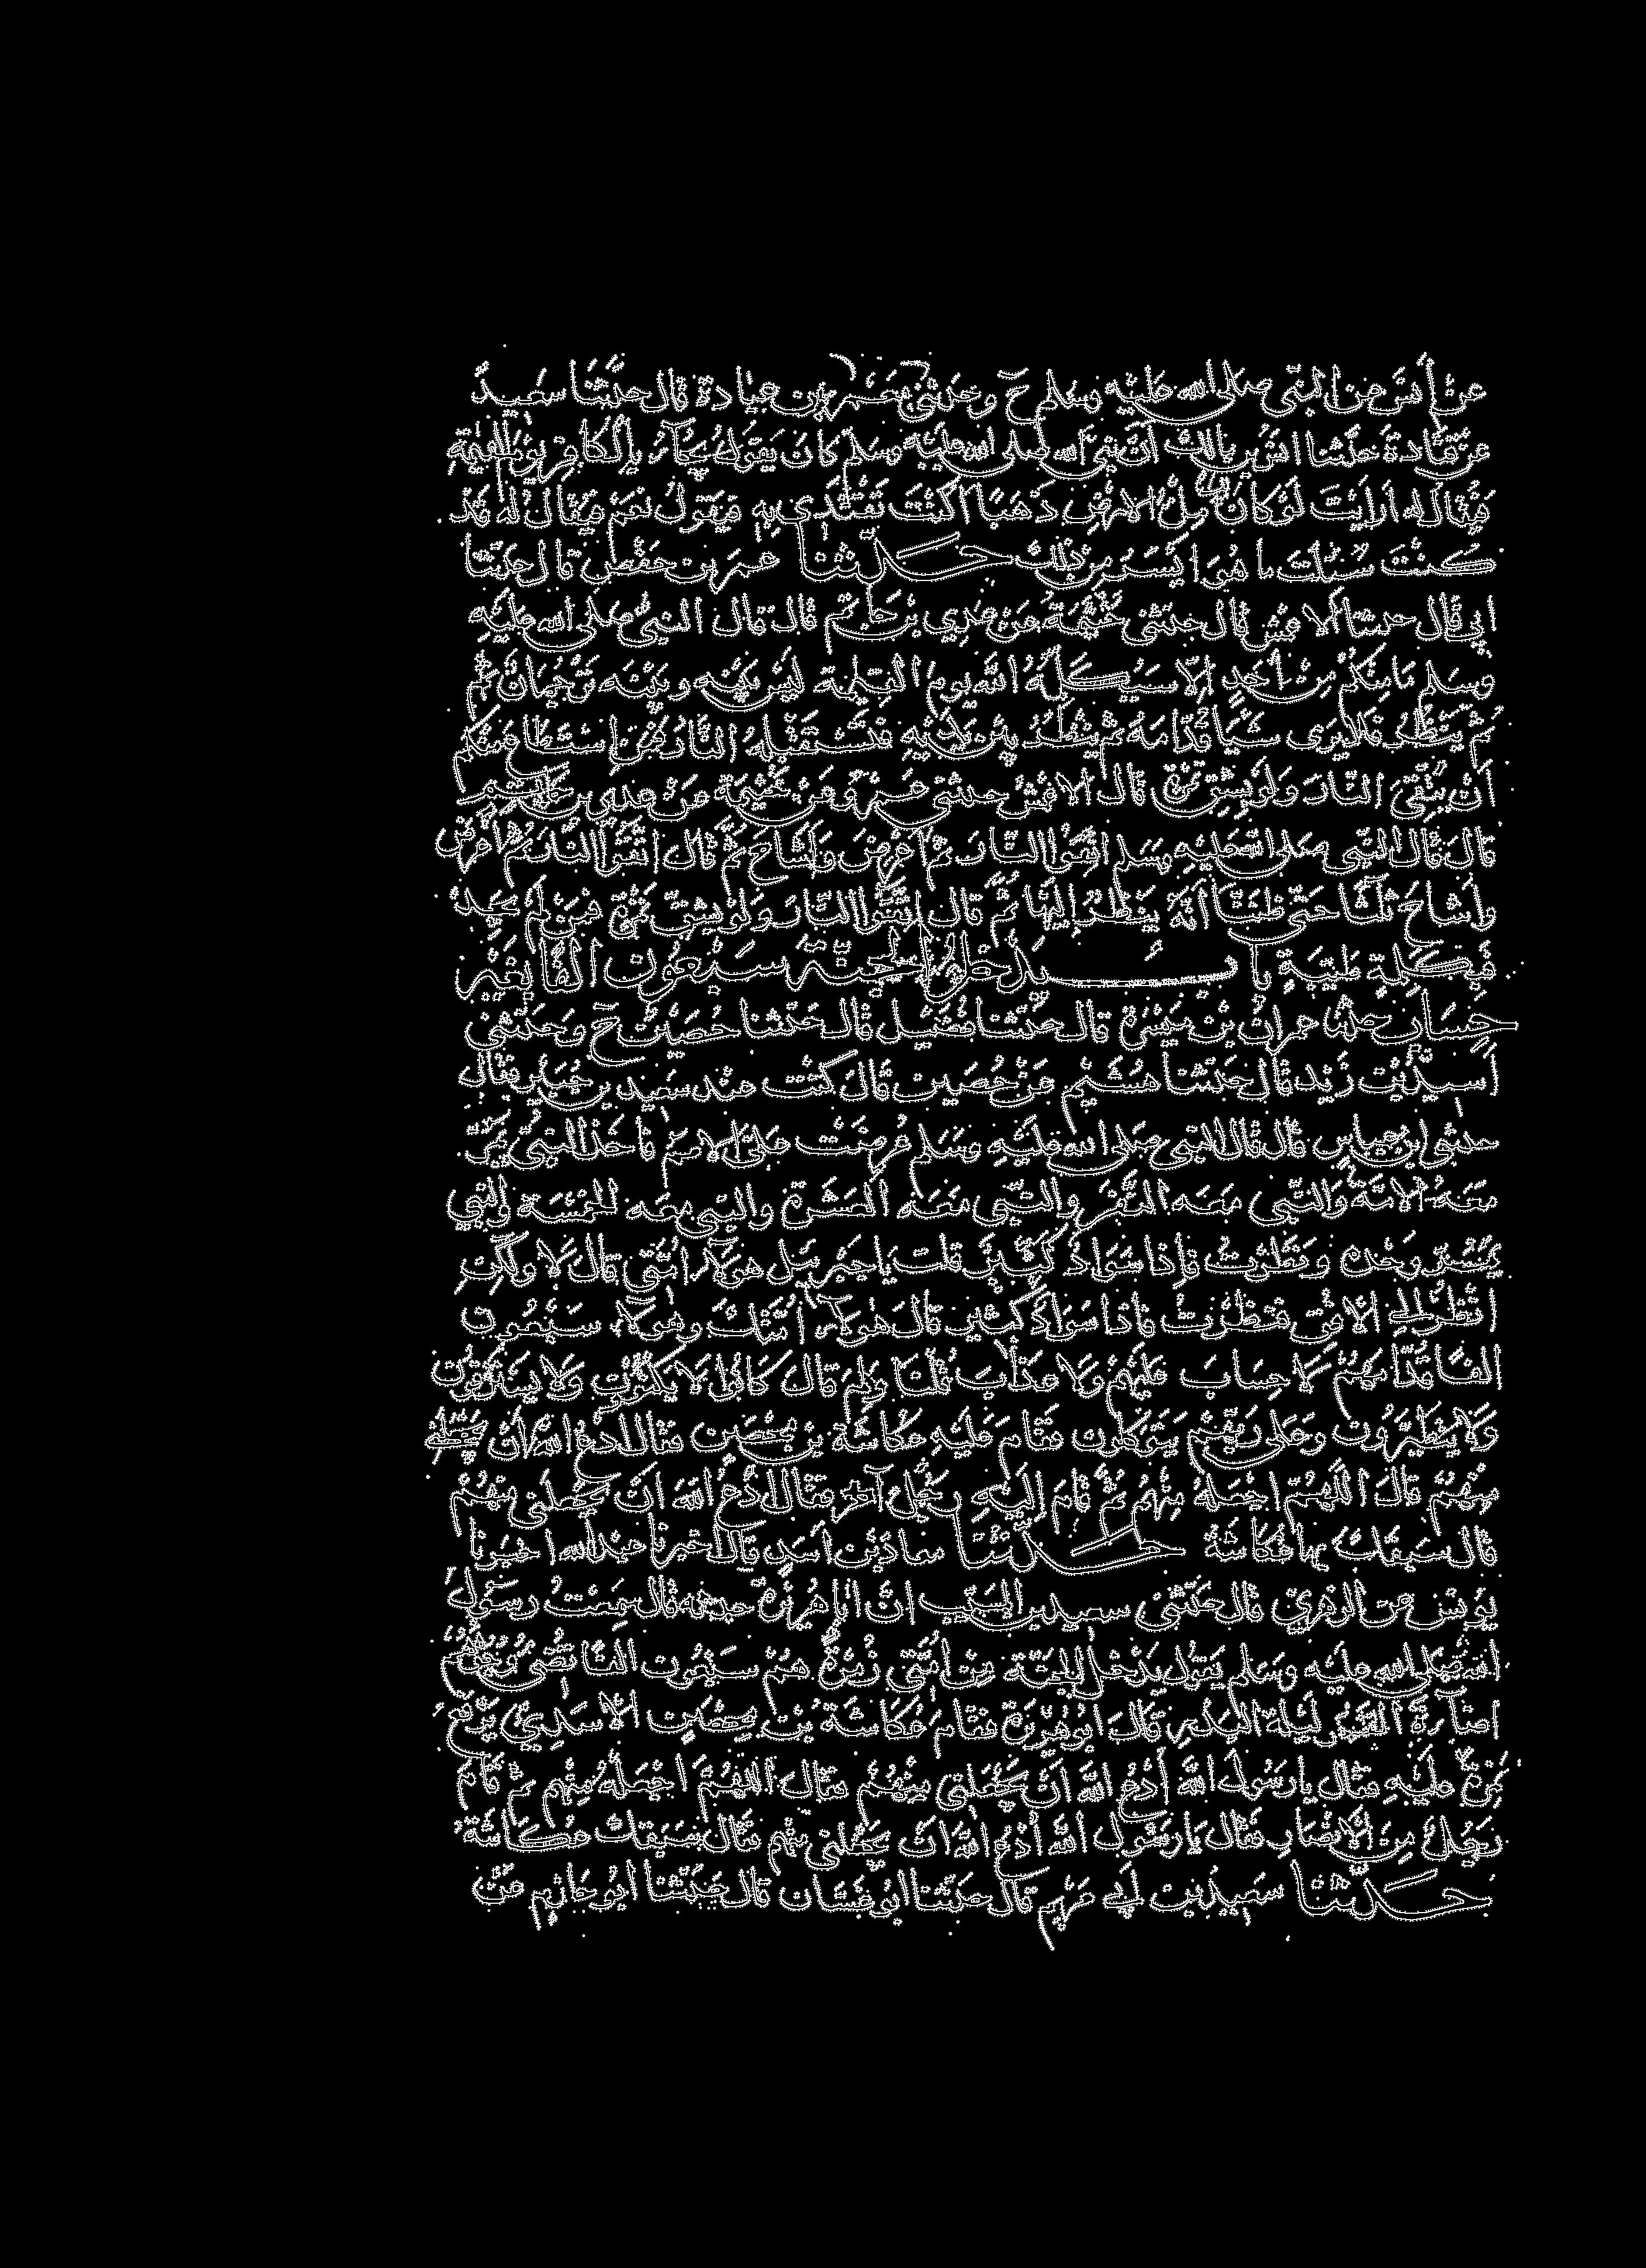 عن أنس عن النبي صلى الله عليه وسلم ح وحدثني معمر بن عبادة قال حدثنا سعيد
عن قتادة حدثنا انس بن مالك أن نبي الله صلى الله عليه وسلم كان يقول يجاء بالكافر يوم القيمة
فيقال له ارايت لو كان لك مل الارض ذهبا اكنت تفتدي به فيقول نعم فيقال له قد
كنت سئلت ما هو ايسر من ذلك حدثنا عمر بن حفص قال حدثنا
ابي قال حدثنا الاعمش قال حدثني خيثمة عن عدي بن حاتم قال قال النبي صلى الله عليه
وسلم ما منكم من أحد إلا سيكلمه الله يوم القيمة ليس بينه وبينه ترجمان ثم
ثم ينظر فلا يرى شيا قدامه ثم ينظر بين يديه فتستقبله النار فمن استطاع منكم
أن يتقي النار ولو بشق تمرة قال الاعمش حدثني عمرو عن خيثمة عن عدي بن حاتم
قال قال النبي صلى الله عليه وسلم اتقوا النار ثم أعرض وأشاح ثم قال اتقوا النار ثم أعرض
وأشاح ثلثا حتى ظننا أنه ينظر إليها ثم قال اتقوا النار ولو بشق تمرة فمن لم يجد
فبكلمة طيبة باب يدخل الجنة سبعون الفا بغير
حساب حدثنا عمران بن ميسرة قال حدثنا فضيل قال حدثنا حصين ح وحدثني
أسيد بن زيد قال حدثنا هشيم عن حصين قال كنت عند سعيد بن جبير فقال
حدثني ابن عباس قال قال النبي صلى الله عليه وسلم عرضت علي الامم فاخذ النبي يمر
معه الامة والنبي معه النفر والنبي معه العشرة والنبي معه الخمسة والنبي
يمر وحده ونظرت فإذا سواد كثير قلت يا جبريل هولاء امتي قال لا ولكن
انظر إلى الافق فنظرت فاذا سواد كثير قال هولاء امتك وهولاء سبعون
الفا قدامهم لا حساب عليهم ولا عذاب قلت ولم قال كانوا لا يكتوون ولا يسترقون
ولا يتطيرون وعلى ربهم يتوكلون فقام عليه عكاشة بن محصن فقال ادع الله أن يجعلني
منهم قال اللهم اجعله منهم ثم قام إليه رجل آخر فقال ادع الله ان يجعلني منهم
قال سبقك بها عكاشة حدثنا معاذ بن أسد قال اخبرنا عبد الله اخبرنا
يونس عن الزهري قال حدثني سعيد بن المسيب ان ابا هريرة حدثه قال سمعت رسول
الله صلى الله عليه وسلم يقول يدخل الجنة من امتي زمرة هم سبعون الفا تضي وجوههم
اضاءة القمر ليلة البدر قال ابو هريرة فقام عكاشة بن محصن الاسدي يرفع
نمرة عليه فقال يا رسول الله أدع الله أن يجعلني منهم فقال اللهم اجعله منهم ثم قام
رجل من الانصار فقال يا رسول الله أدع الله ان يجعلني منهم فقال سبقك عكاشة
حدثنا سعيد بن أبي مريم قال حدثنا ابو غسان قال حدثنا ابو حازم عن